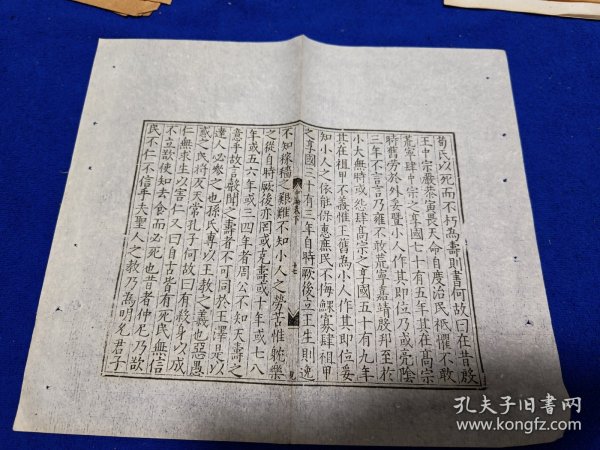 荀氏以死而不朽為壽則書何故曰在昔殷
王中宗嚴恭寅畏天命自度治民祗懼不敢
荒寧肆中宗之享國七十有五年其在高宗
時舊勞於外爰暨小人作其即位乃或亮陰
三年不言言乃雍不敢荒寧嘉靖殷邦至於
小大無時或怨肆高宗之享國五十有九年
其在祖甲不義惟王舊為小人作其即位爰
知小人之依能保惠庶民不侮鰥寡肆祖甲
之享國三十有三年自時厥後立王生則逸
中論卷下
不知稼穡之艱難不知小人之勞苦惟耽樂
之從自時厥後亦罔或克壽或十年或七八
年或五六年或三四年者周公不知天壽之
意乎故言聲聞之壽者不可同於王澤是以
達人必參之也孫氏專以王教之義也惡愚
惑之民將反天常孔子何故曰有殺身以成
仁無求生以害仁又曰自古皆有死民無信
不立欲使知去食而必死也昔者仲尼乃欲
民不仁不信乎夫聖人之教乃為明允君子
孔夫子旧书网
www.kongfz.com